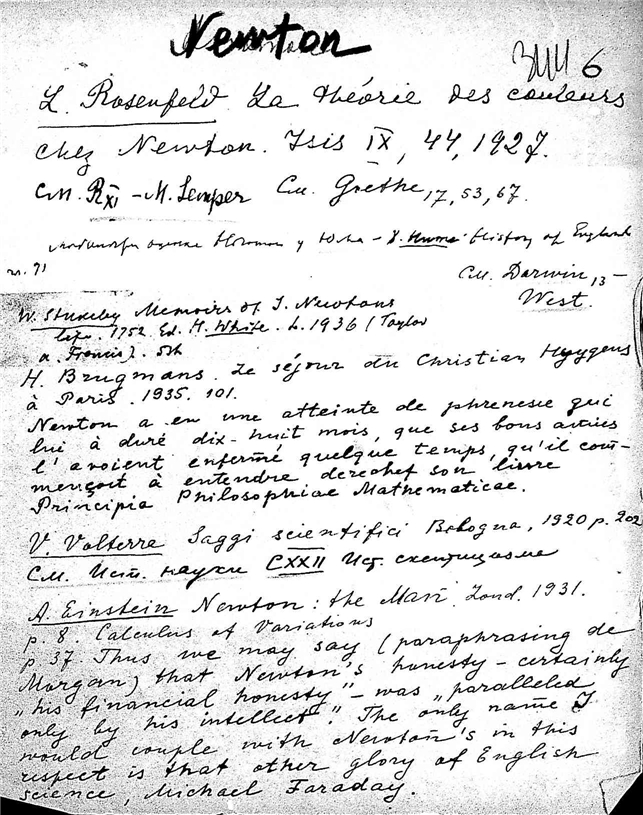 Newton
6
L. Rosenfeld La théorie des couleurs
chez Newton. Isis IX, 44, 1927.
см. R XI - M. Semper См. Goethe 17, 53, 67.
Ньютона у Юма - D. Hume History of England
см. Darwin 13 -
West.
W. Stukeley Memoirs of I. Newtons
life. 1752. Ed. H. White. L. 1936 (Taylor
a. Francis).
H. Brugmans. Le séjour du Christian Huygens
à Paris. 1935. 101.
Newton a eu une atteinte de phrenesie qui
lui à duré dix-huit mois, que ses bons amies
l'avoient enfermé quelque temps, qu'il com-
mençoit à entendre derechef son livre
Principia Philosophiae Mathematicae.
V. Volterre Saggi scientifici Bologna, 1920 p. 202
См. Ист. науки CXXII Ист. скептицизме
A. Einstein Newton: the Man. Lond. 1931.
p. 8. Calculus of Variations
p. 37. Thus we may say (paraphrasing de
Morgan) that Newton's honesty - certainly
„his financial honesty" - was „paralleled
only by his intellect". The only name I
would couple with Newton's in this
respect is that other glory of English
science, Michael Faraday.